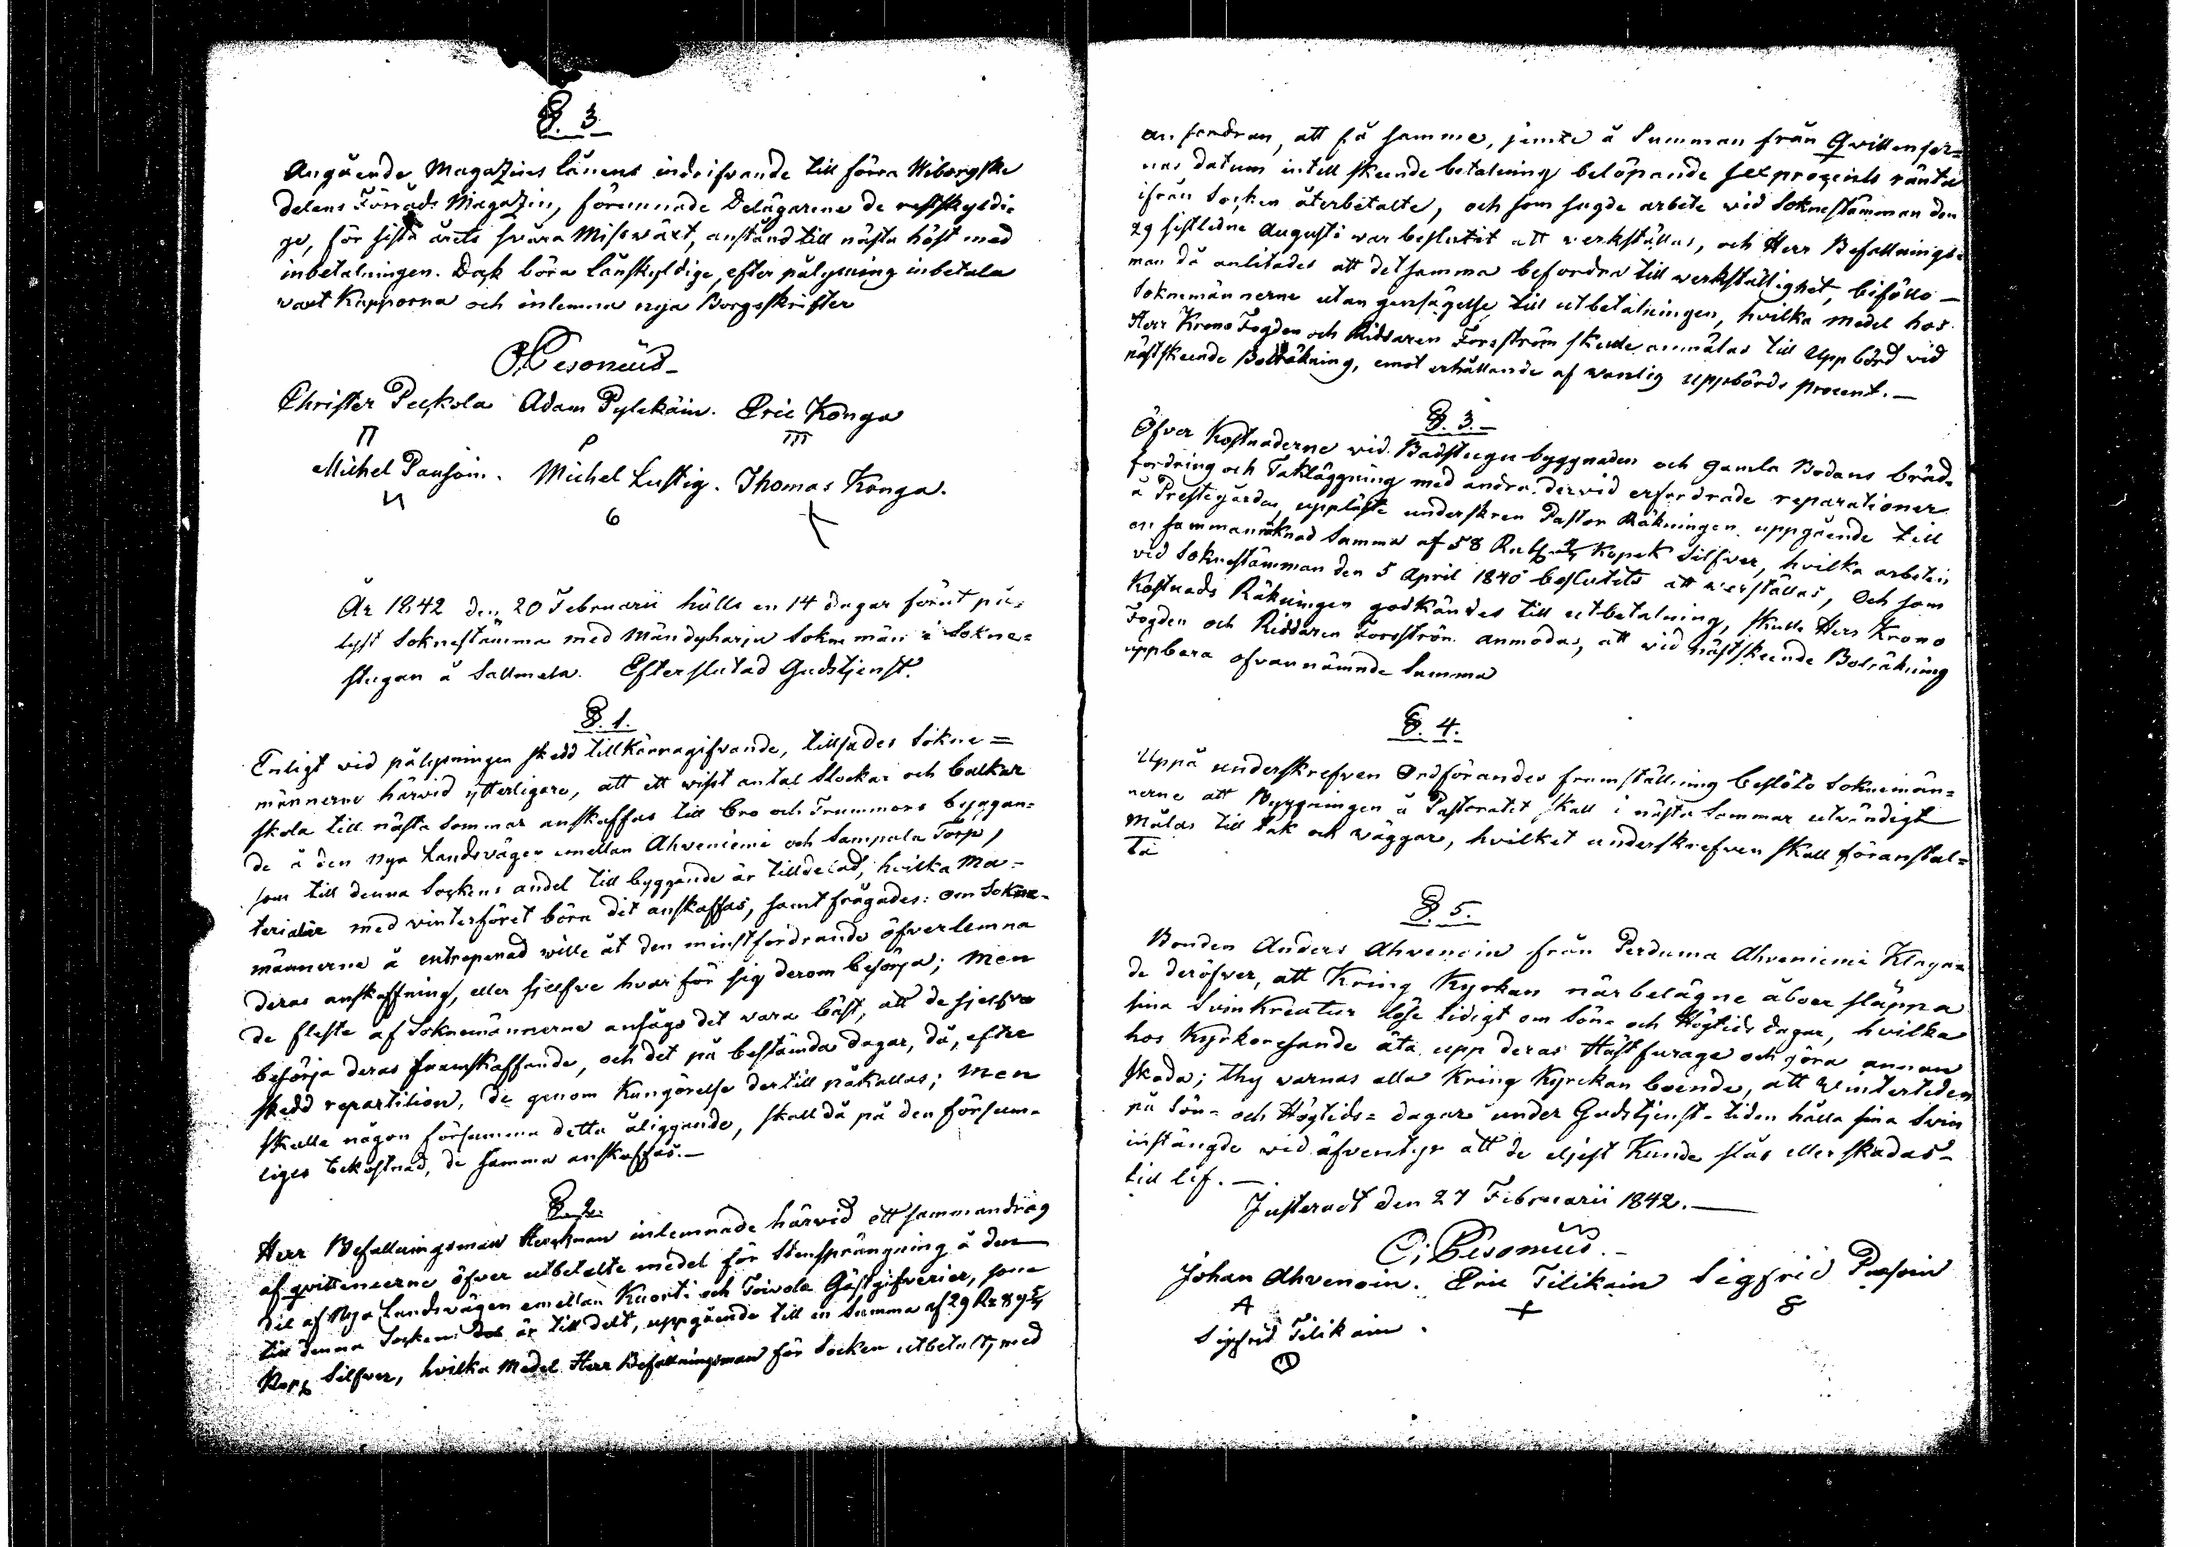 §. 3
Angående Magazins lånens indrifvande till förra Wiborgske
delens Förråds Magazin, förunnade Delägarne de restskyldi-
ge, för sista årets svåra Missväxt, anstånd till nästa höst med
inbetalningen. Dock böra Lånskyldige, efter pålysning inbetala
växt Kapporna och inlemna nya Borgeskrifter
Christer Peskola Adam Pylckäin. Eric Konga
Michel Pausoin. Michel Lustig. Thomas Konga.
6
År 1842 den 20 Februarii hölls en 14 dagar förut på-
lyst Soknestämma med Mändyharju Sokne män i Sokne-
stugan å Sallmela. Efter slutad Gudstjenst.
§. 1.
Enligt vid pålysningen skedd tillkännagifvande, tillsades Sokne=
männerne härvid ytterligare, att ett visst antal Stockar och balkar
skola till nästa Sommar anskaffas till bro och Trummors byggan-
de å den nya Landsvägen emellan Ahveniemi och Sampala Torp,
som till denna Sockens andel till byggande är tilldelad, hvilka Ma-
terialier med vinterföret böra dit anskaffas, samt frågades: om Sokne-
männerne å entreprenad wille åt den minstfordrande öfverlemna
deras anskaffning, eller sjelfve hvar för sig derom besörja; Men
de fleste af Soknemännerne ansågo det vara bäst, att de sjelfva
besörja deras framskaffande, och det på bestämda dagar, då, efter
skedd repartition, de genom Kungörelse dertill påkallas; Men
skulle någon försumma detta åliggande, skall då på den försum-
liges bekostnad, de samma anskaffas.—
§. 2.
Herr Befallningsman inlemnade härvid ett sammandrag
af qvittencerne öfver utbetalte medel för Stensprängning å den
del af Nya Landsvägen emellan Kuorti och Toivola Gästgifverier, som
till denna Socken är till delt, uppgående till en Summa af 29 R: 89 5/7
Kop: Silfver, hvilka Medel Herr Befallningsman för Socken utbetalt, med
anfordran, att få samme, jemte å Summan från Qwittenser=
nas datum intill skeende betalning belöpande sex procents ränta
ifrån Socken återbetalte, och som sagde arbete vid Soknestämman den
29 sistledne Augusti war beslutit att verkställas, och Herr Befallnings-
man då anlitades att det samma befordra till werkställighet, biföllo —
Soknemännerne utan gensägelse till utbetalningen, hvilka medel hos
Herr Krono Fogden och Riddaren Forsström skulle anmälas till Uppbörd vid
nästskeende Bolräkning, emot erhållande af vanlig uppbörds procent.—
§. 3.—
Öfver Kostnaderne vid Badstugu byggnaden och gamla Bodans bräd-
fordring och Takläggning med andra dervid erfordrade reparationer
å Prestegården, uppläste underskren Pastor Räkningen uppgående till
en sammanräknad Summa af 58 Rub: Kopek Silfver, hvilka arbeten
vid Soknestämman den 5 April 1840 beslutits att verställas, Och som
Kostnads Räkningen godkändes till utbetalning, skulle Herr Krono
Fogden och Riddaren Forsström anmodas, att vid nästskeende Bolräkning
uppbära ofvannämnde Summa
§. 4.
Uppå underskrefven Ordförandes framställning beslöto Soknemän=
nerne att Byggningen å Pastoratet skall i nästa Sommar utvändigt
Målas till tak och väggar, hvilket underskrefven skall föranstal=
ta
§. 5.
Bonden Anders Ahvenoin från Perduma Ahveniemi Klaga=
de deröfver, att Kring Kyrkan närbelägne åboer släppa
sina Svinkreatur löse tidigt om Sön- och Högtids dagar, hvilka
hos Kyrkoresande äta upp deras Hästfurage och göra annan
skada; thy varnas alla Kring Kyrckan boende, att Wintertiden
på Sön- och Högtids= dagar under Gudstjenst- tiden hålla sina Svin
instängde vid äfventyr att de eljest Kunde slås eller skadas-
till lif.—
Justeradt den 27 Februarii 1842.—
Johan Ahvenoin. Eric Tilikain Sigfrid Pasoin
A + 8
Sigfrid Tilikain.